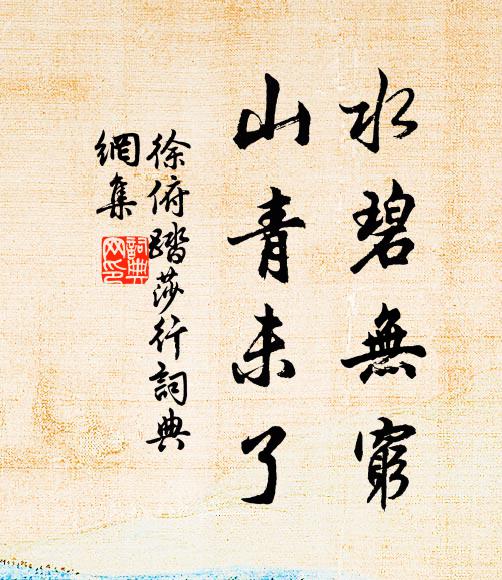 水碧無窮
山青未了
徐俯踏莎行詞典
網集
詞典
网印